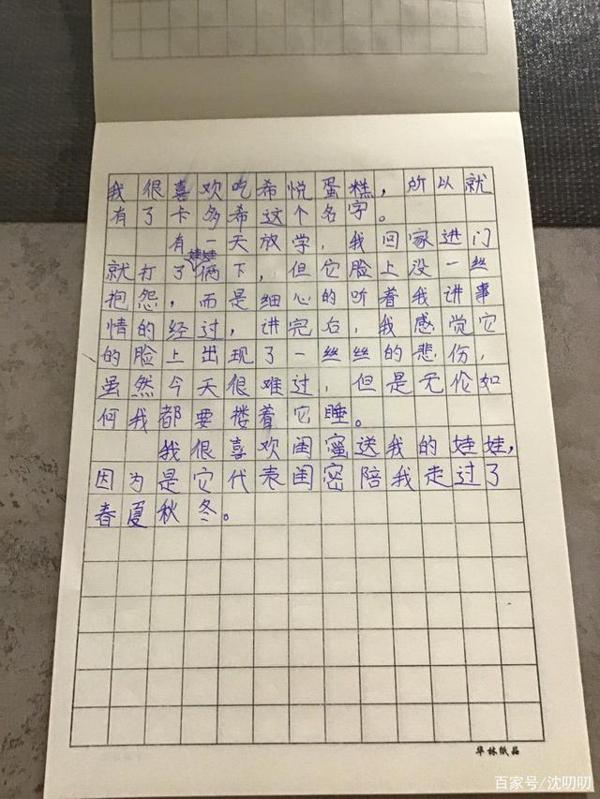 我很喜欢吃希悦蛋糕，所以就
有了卡多希这个名字。
有一天放学，我回家进门
就打了娃娃俩下，但它脸上没一丝
抱怨，而是细心的听着我讲事
情的经过，讲完后，我感觉它
的脸上出现了一丝丝的悲伤，
虽然今天很难过，但是无伦如
何我都要搂着它睡。
我很喜欢闺蜜送我的娃娃，
因为是它代表闺密陪我走过了
春夏秋冬。
华林纸品
百家号/沈叨叨